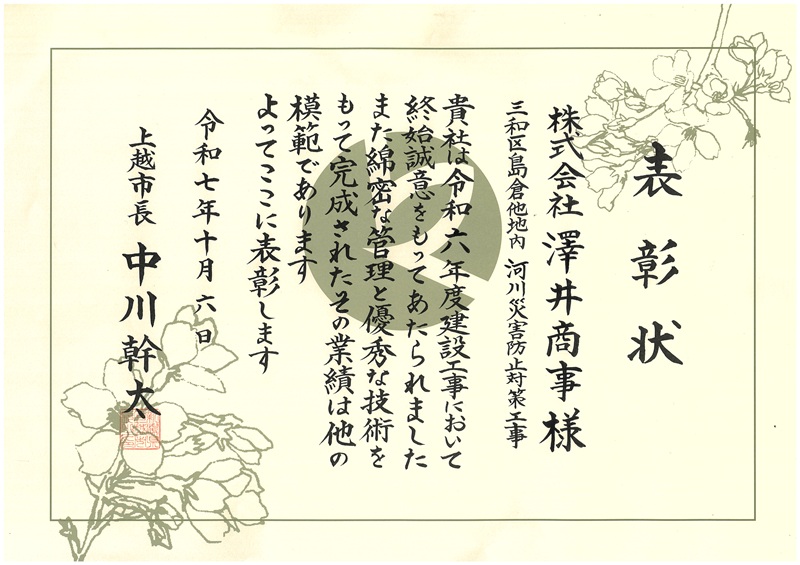 表彰状
株式会社 澤井商事様
三和区島倉他地内 河川災害防止対策工事
貴社は令和六年度建設工事において
終始誠意をもってあたられました
また綿密な管理と優秀な技術を
もって完成されたその業績は他の
模範であります
よってここに表彰します
令和七年十月六日
上越市長 中川幹太